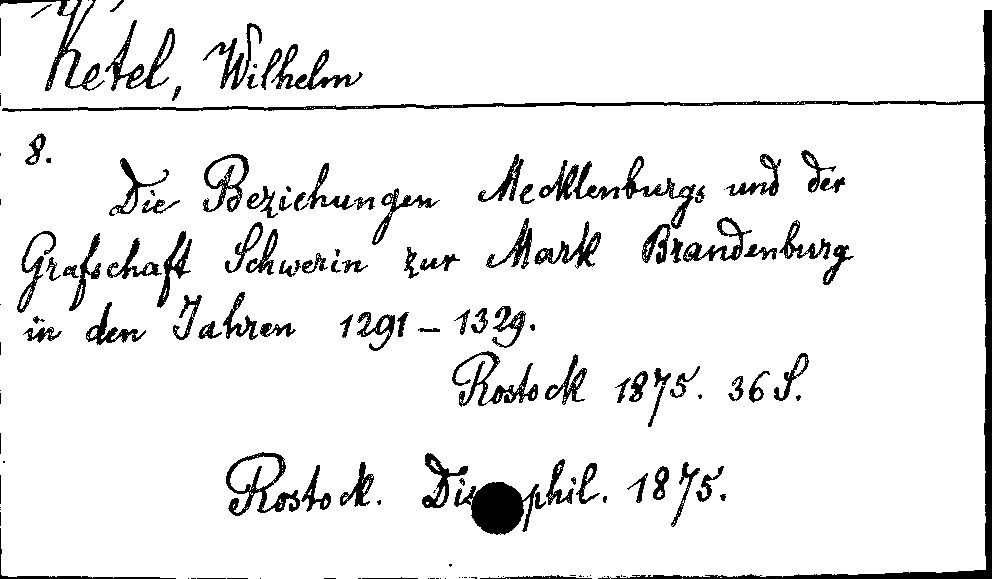 Ketel, Wilhelm
8.
Die Beziehungen Mecklenburgs und der
Grafschaft Schwerin zur Mark Brandenburg
in den Jahren 1291 – 1329.
Rostock 1875. 36 S.
Rostock. Dis phil. 1875.